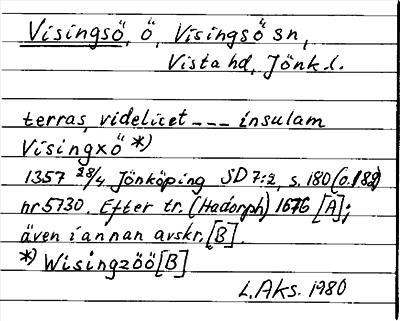 Visingsö, ö, Visingsö sn,
Vista hd, Jönk.l.
terras, videlicet --- insulam
Visingxö *)
1357 28/4 Jönköping SD 7:2, s. 180 (o. 182)
nr 5730. Efter tr. (Hadorph) 1676 [A];
även i annan avskr. [B].
*) Wisingzöö [B]
L. Aks. 1980